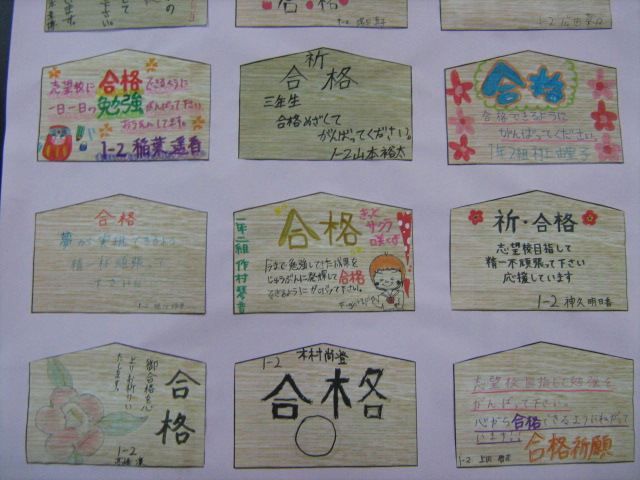 合格
1-2
志望校に合格できるように
一日一日の勉強がんばって下さい。
おうえんしてます。
1-2 稲葉遥香
祈
合格
三年生
合格めざして
がんばってください。
1-2 山本裕太
合格
合格できるように
がんばってください。
1年2組 村上
合格
夢が実現できるよう
精一杯頑張って
下さいね
1-2
合格
きっと
サクラ
咲くよ
一年二組 作村琴音
今まで勉強してきた成果を
じゅうぶんに発揮して合格
できるようにがんばって下さい。
祈・合格
志望校目指して
精一杯頑張って下さい
応援しています
1-2 神久明日香
合格
御合格を心
よりお祈りい
たします。
1-2
1-2 木村尚登
合格
志望校目指して勉強を
がんばって下さい。
心から合格できるようにねがって
います!!
合格祈願
1-2 上田